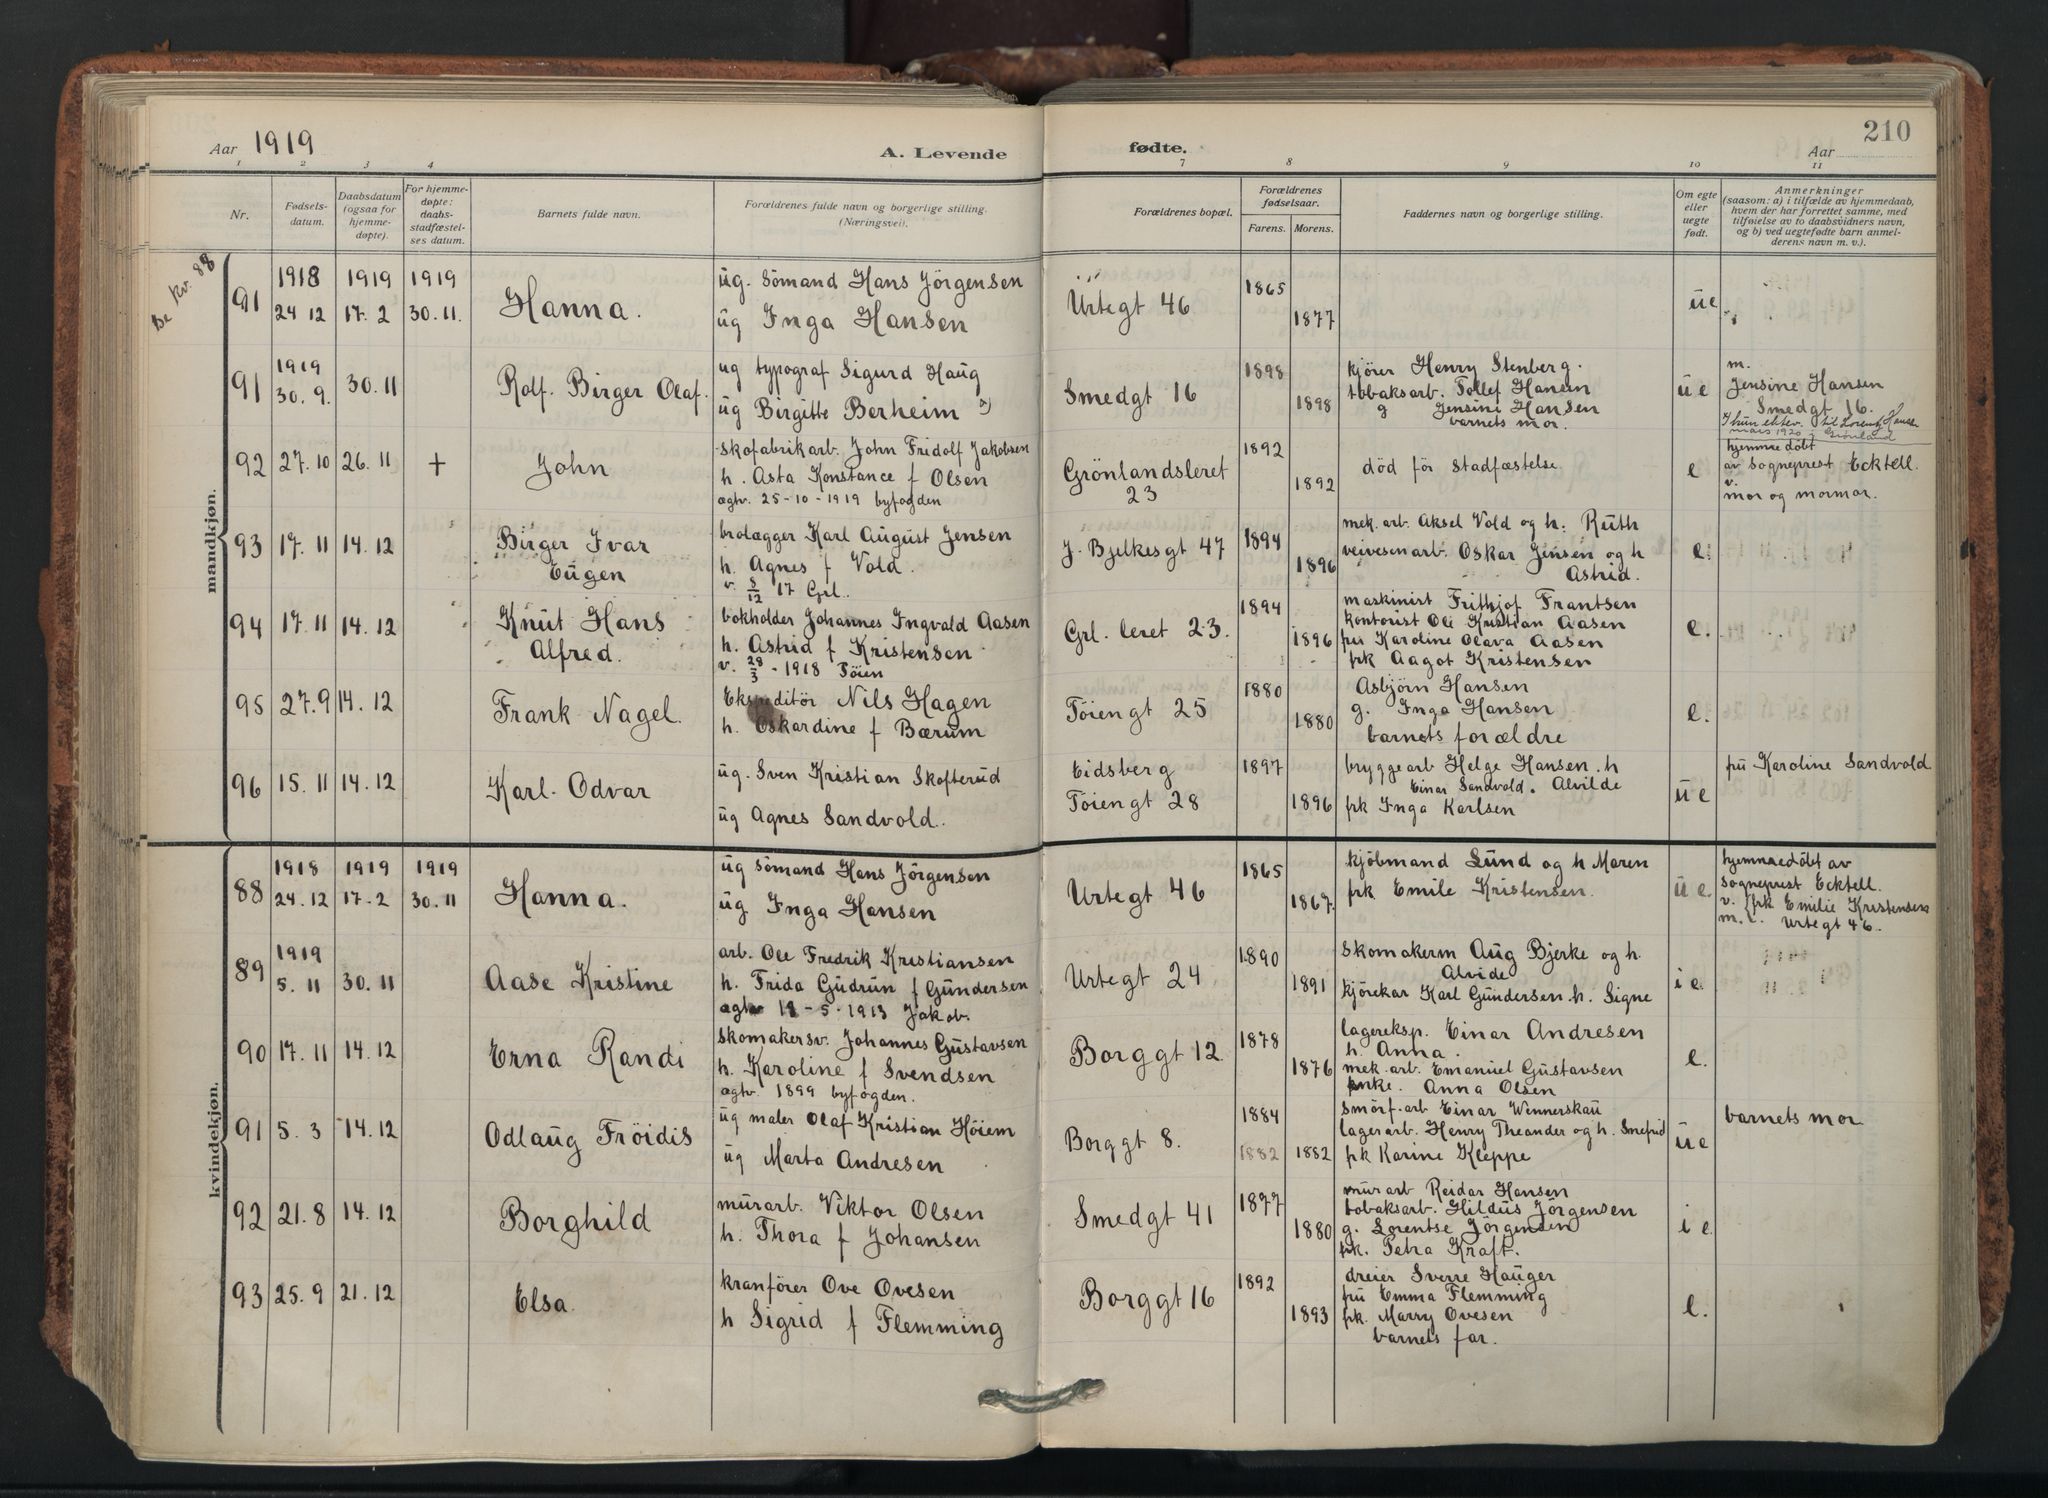 210
Aar 1919
A. Levende
fødte.
Aar
1 2 3 4
7 8 9 10 11
Nr.
Fødsels-
datum.
Daabsdatum
(ogsaa for
hjemme-
døpte).
For hjemme-
døpte:
daabs-
stadfæstel-
ses datum.
Barnets fulde navn.
Forældrenes fulde navn og borgerlige stilling.
(Næringsvei).
Forældrenes bopæl.
Forældrenes
fødselsaar.
Farens. Morens.
Faddernes navn og borgerlige stilling.
Om egte
eller
uegte
født.
Anmerkninger
(saasom: a) i tilfælde av hjemmedaab,
hvem der har forrettet samme, med
tilføielse av to daabsvidners navn,
og b) ved uegtefødte barn anmel-
derens navn m. v.).
mandkjøn.
kv. 88
91
1918 1919 1919
24 12 17. 2 30. 11.
Hanna.
ug. sömand Hans Jörgensen
ug Inga Hansen
Urtegt 46
1865
1877
u e
91
1919
30. 9. 30. 11
Rolf. Birger Olaf.
ug typograf Sigurd Haug
ug Birgitte Berheim
Smedgt 16
1898
1898
kjörer Henry Stenberg.
tobaksarb. Tollef Hansen
g Jensine Hansen
barnets mor.
u e
m.
Jensine Hansen
Smedgt 16.
mars 1920 Grønland
92 27. 10 26. 11 +
John
skofabrikarb. John Fridolf Jakobsen
h. Asta Konstance f Olsen
agtv. 25-10-1919 byfogden
Grönlandsleret
23
1892
1892
död för stadfæstelse
e
hjemmedöbt
av sogneprest Ecktell.
v.
mor og mormor.
93 17. 11 14. 12
Birger Ivar
Eugen
brolægger Karl August Jensen
h. Agnes f Vold.
v. 8/12 17 Grl.
J. Bjelkesgt 47
1894
1896
mek. arb. Aksel Vold og h. Ruth
veivesenarb. Oskar Jensen og h
Astrid.
e.
94 17. 11 14. 12
Knut Hans
Alfred.
bokholder Johannes Ingvald Aasen
h. Astrid f Kristensen
v. 28/3 - 1918 Töien
Grl. leret 23.
1894
1896
maskinist Frithjof Frantsen
kontorist Ole Kristian Aasen
fru Karoline Olava Aasen
frk Aagot Kristensen
e.
95 27. 9 14. 12
Frank Nagel.
Ekspeditör Nils Hagen
h. Oskardine f Bærum
Töiengt 25
1880
1880
Asbjörn Hansen
g. Inga Hansen
barnets forældre
e.
96 15. 11 14. 12
Karl. Odvar
ug. Sven Kristian Skofterud
ug Agnes Sandvold.
Eidsberg
Töiengt 28
1897
1896
bryggearb Helge Hansen. h
Einar Sandvold. Alvilde
frk Inga Karlsen
u e
fru Karoline Sandvold
kvindekjøn.
88
1918 1919 1919
24. 12 17-2 30. 11
Hanna.
ug sömand Hans Jörgensen
ug Inga Hansen
Urtegt 46
1865
1867.
kjöbmand Lund og h Maren
frk Emilie Kristensen.
u e
hjemmedöbt av
sogneprest Ecktell.
v. frk Emilie Kristensen
Urtegt 46.
89
1919
5. 11 30. 11
Aase Kristine
arb. Ole Fredrik Kristiansen
h. Frida Gudrun f Gundersen
agtv 18-5-1913 Jakob.
Urtegt 24
1890
1891
skomakerm Aug Bjerke og h.
Alvide
kjörekar Karl Gundersen. h. Signe
i e
90 17. 11 14. 12
Erna Randi
skomakersv. Johannes Gustavsen
h. Karoline f Svendsen
agtv. 1899 byfogden.
Borggt 12
1878
1876
lagereksp. Einar Andresen
h. Anna.
mek. arb. Emanuel Gustavsen
enke. Anna Olsen
e.
91 5. 3 14. 12
Odlaug Fröidis
ug maler Olaf Kristian Höiem
ug Marta Andresen
Borggt 8.
1884
1882 1882
smörf. arb Einar Wennerskau
lagerarb. Henry Theander og h. Smefrid
frk Karine Kleppe
u e
barnets mor
92 21. 8 14. 12
Borghild
murarb. Viktor Olsen
h. Thora f Johansen
Smedgt 41
1877
1880
murarb Reidar Hansen
tobaksarb. Hildus Jörgensen
g. Lorentse Jörgensen
frk. Petra Kraft.
i e.
93 25. 9 21. 12
Elsa.
kranförer Ove Ovesen
h Sigrid f Flemming
Borggt 16
1892
1893
dreier Sverre Hauger
fru Emma Flemming
frk. Marry Ovesen
barnets far.
e.